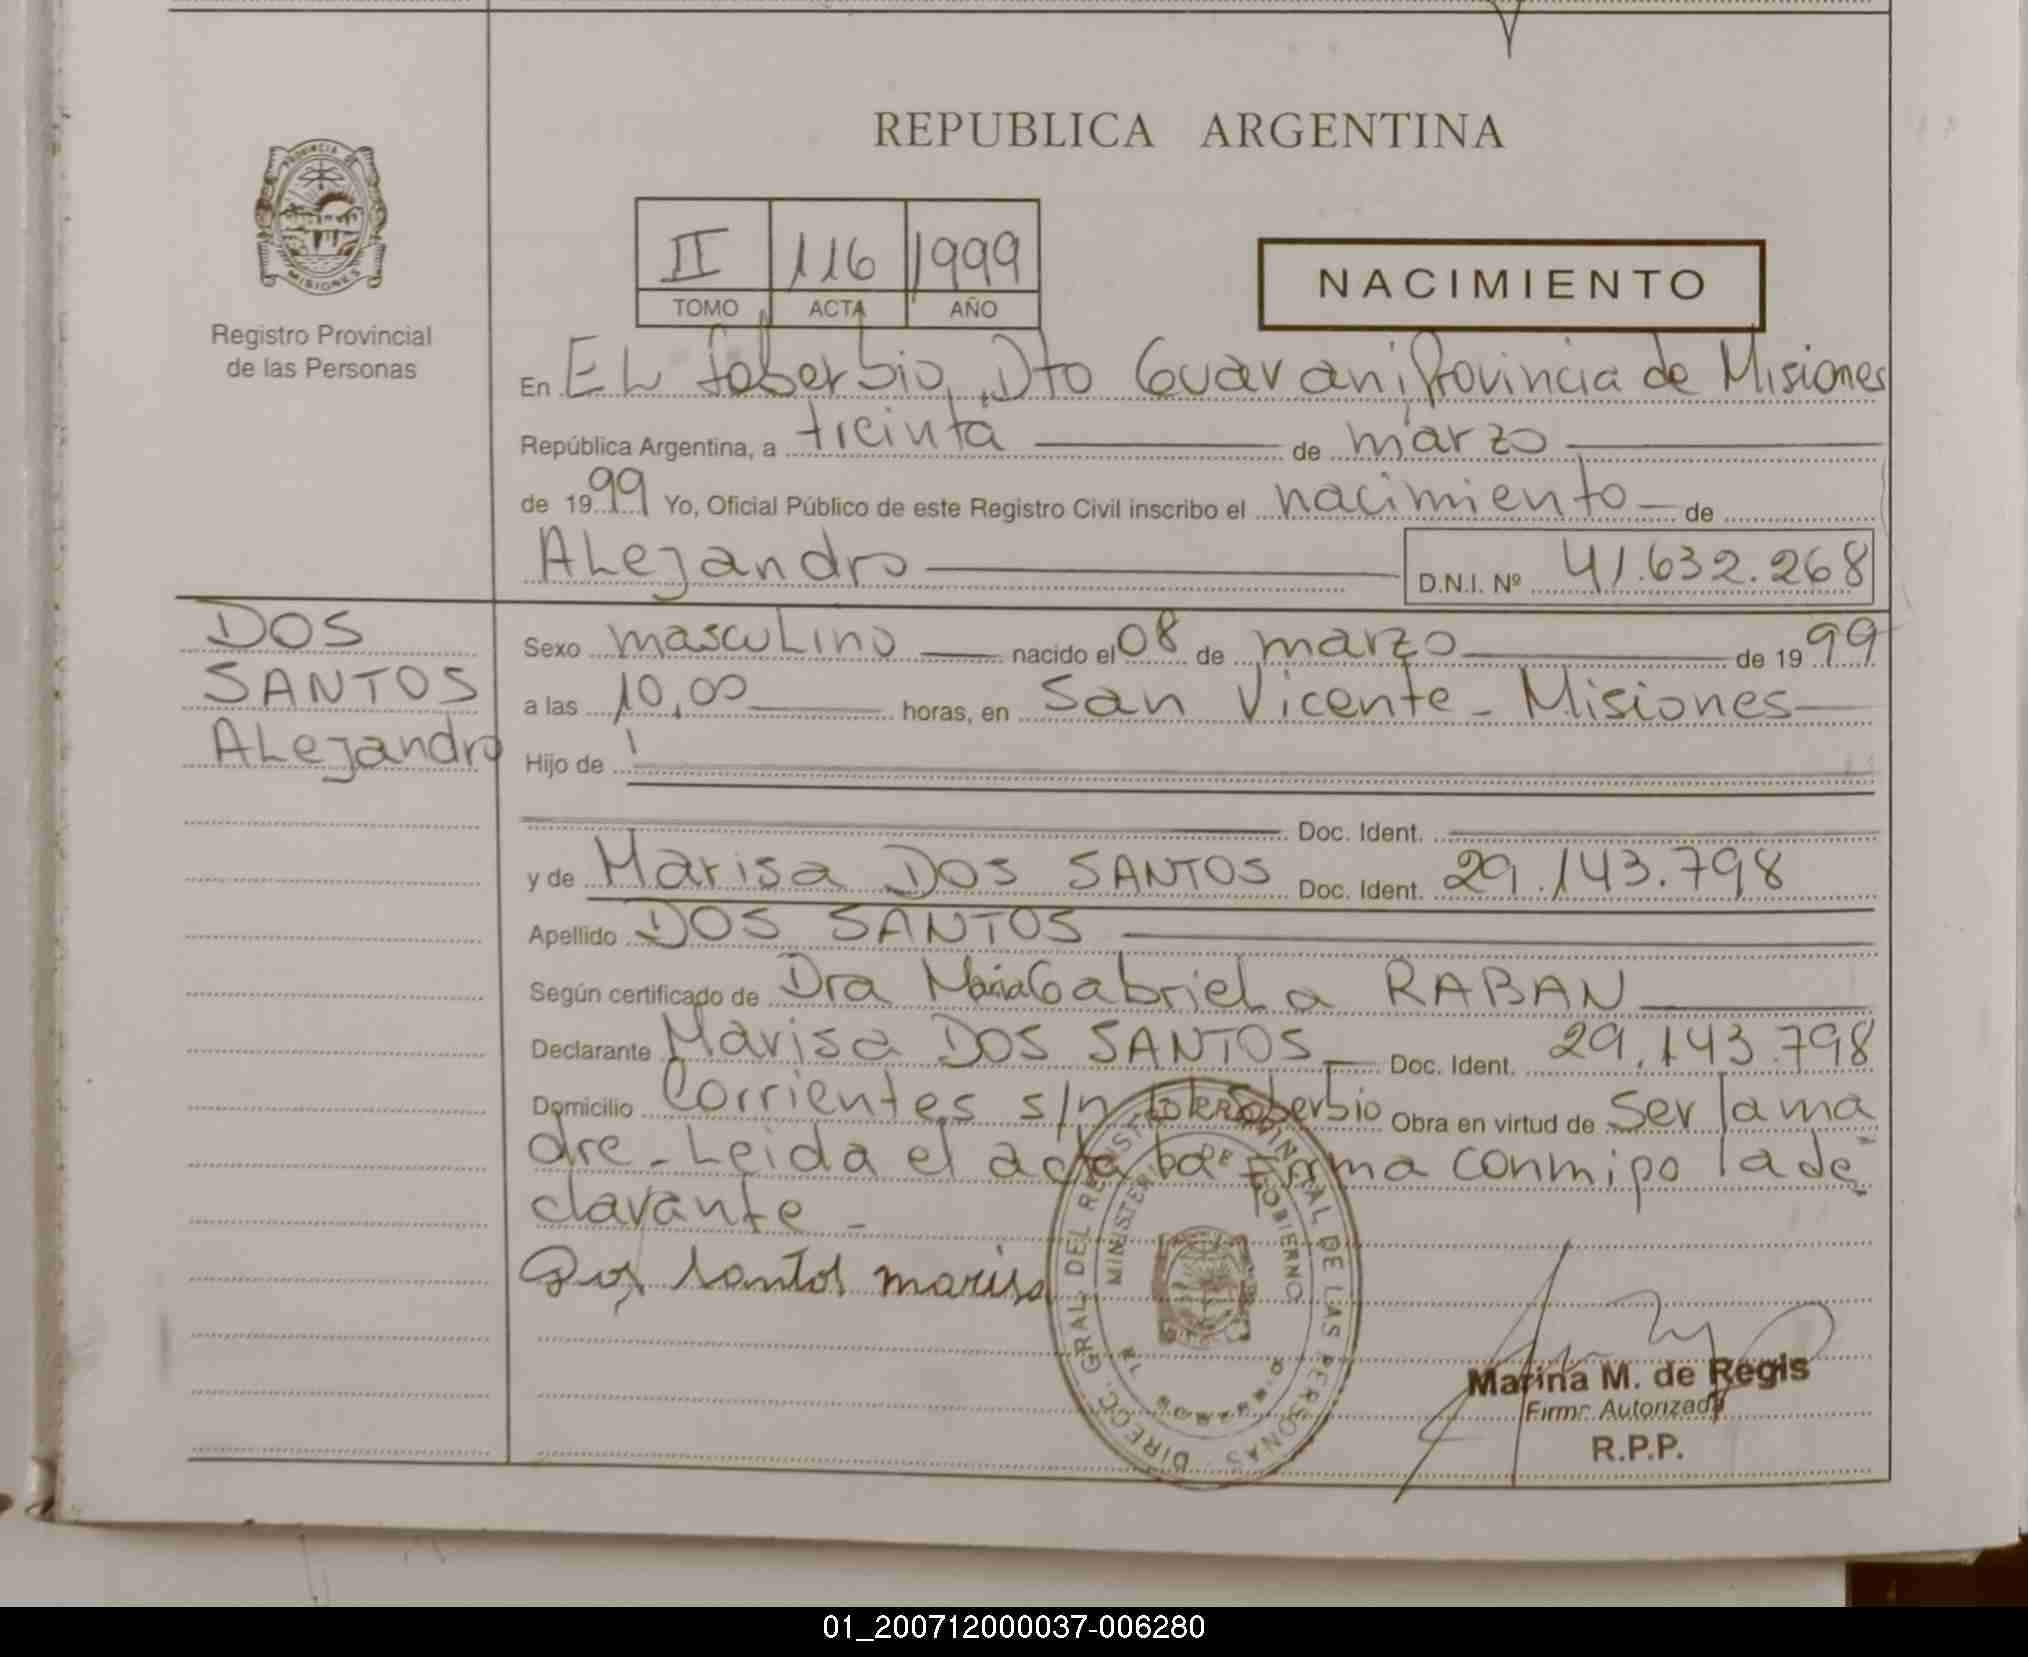 REPUBLICA ARGENTINA
PROVINCIA DE
MISIONES
Registro Provincial
de las Personas
II 116 1999
TOMO ACTA AÑO
NACIMIENTO
En EL Soberbio, Dto Guaraní Provincia de Misiones
República Argentina, a treinta de marzo
de 1999 Yo, Oficial Público de este Registro Civil inscribo el nacimiento de
ALejandro D.N.I. Nº 41.632.268
DOS
SANTOS
ALejandro
Sexo mascuLino nacido el 08 de marzo de 1999
a las 10,00 horas, en San Vicente - Misiones
Hijo de
Doc. Ident.
y de Marisa DOS SANTOS Doc. Ident. 29.143.798
Apellido DOS SANTOS
Según certificado de Dra Maria GabrieLa RABAN
Declarante Marisa DOS SANTOS Doc. Ident. 29.143.798
Domicilio Corrientes s/n Soberbio Obra en virtud de Ser la ma
dre - Leida el acta firma conmigo la de
clarante -
Dos Santos marisa
DIRECC. GRAL. DEL REGISTRO PROVINCIAL DE LAS PERSONAS
MINISTERIO DE GOBIERNO
Marina M. de Regis
Firma Autorizada
R.P.P.
01_200712000037-006280